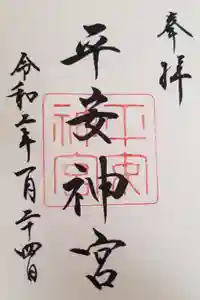 奉拝
平安神宮
平安
神宮
令和年一月二十四日